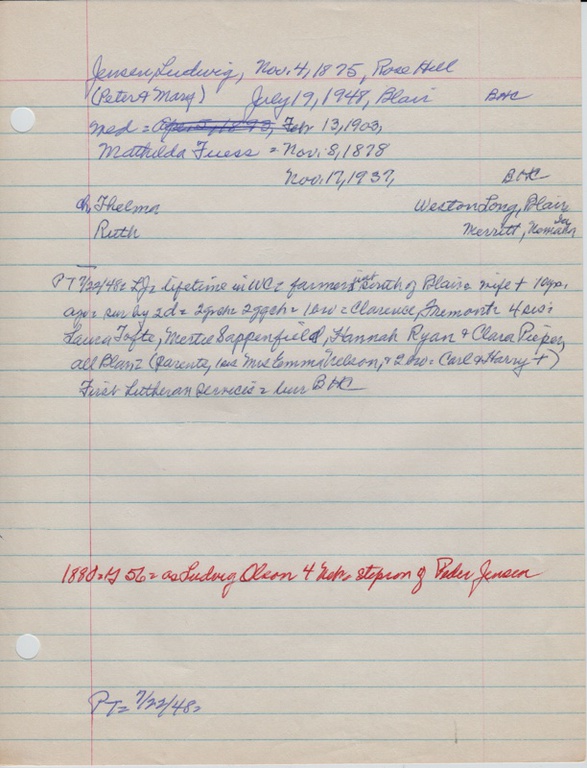 Jensen, Ludwig, Nov. 4, 1875, Rose Hill
(Peter & Mary) July 19, 1948, Blair BHC
med = April 5, 1893, Febr 13, 1903,
Mathilda Fuess = Nov. 8, 1878
Nov. 17, 1937, BHC
ch, Thelma Weston Long, Blair
Ruth Merritt, Nomann
PT 7/22/48 = LJ = lifetime in WC = farmer just south of Blair = wife + 10 yrs
ago = sur by 2d = 2gch = 2ggch = 1bro = Clarence, Fremont = 4 sis =
Laura Tofte, Mertie Sappenfield, Hannah Ryan & Clara Pieper,
all Blair = (parents, 1sis Mrs Emma Nelson, & 2 bro = Carl & Harry +)
First Lutheran services = bur BHC
1880 = 56 = as Ludvig Olson 4 Neb = stepson of Peder Jensen
PT = 7/22/48 =